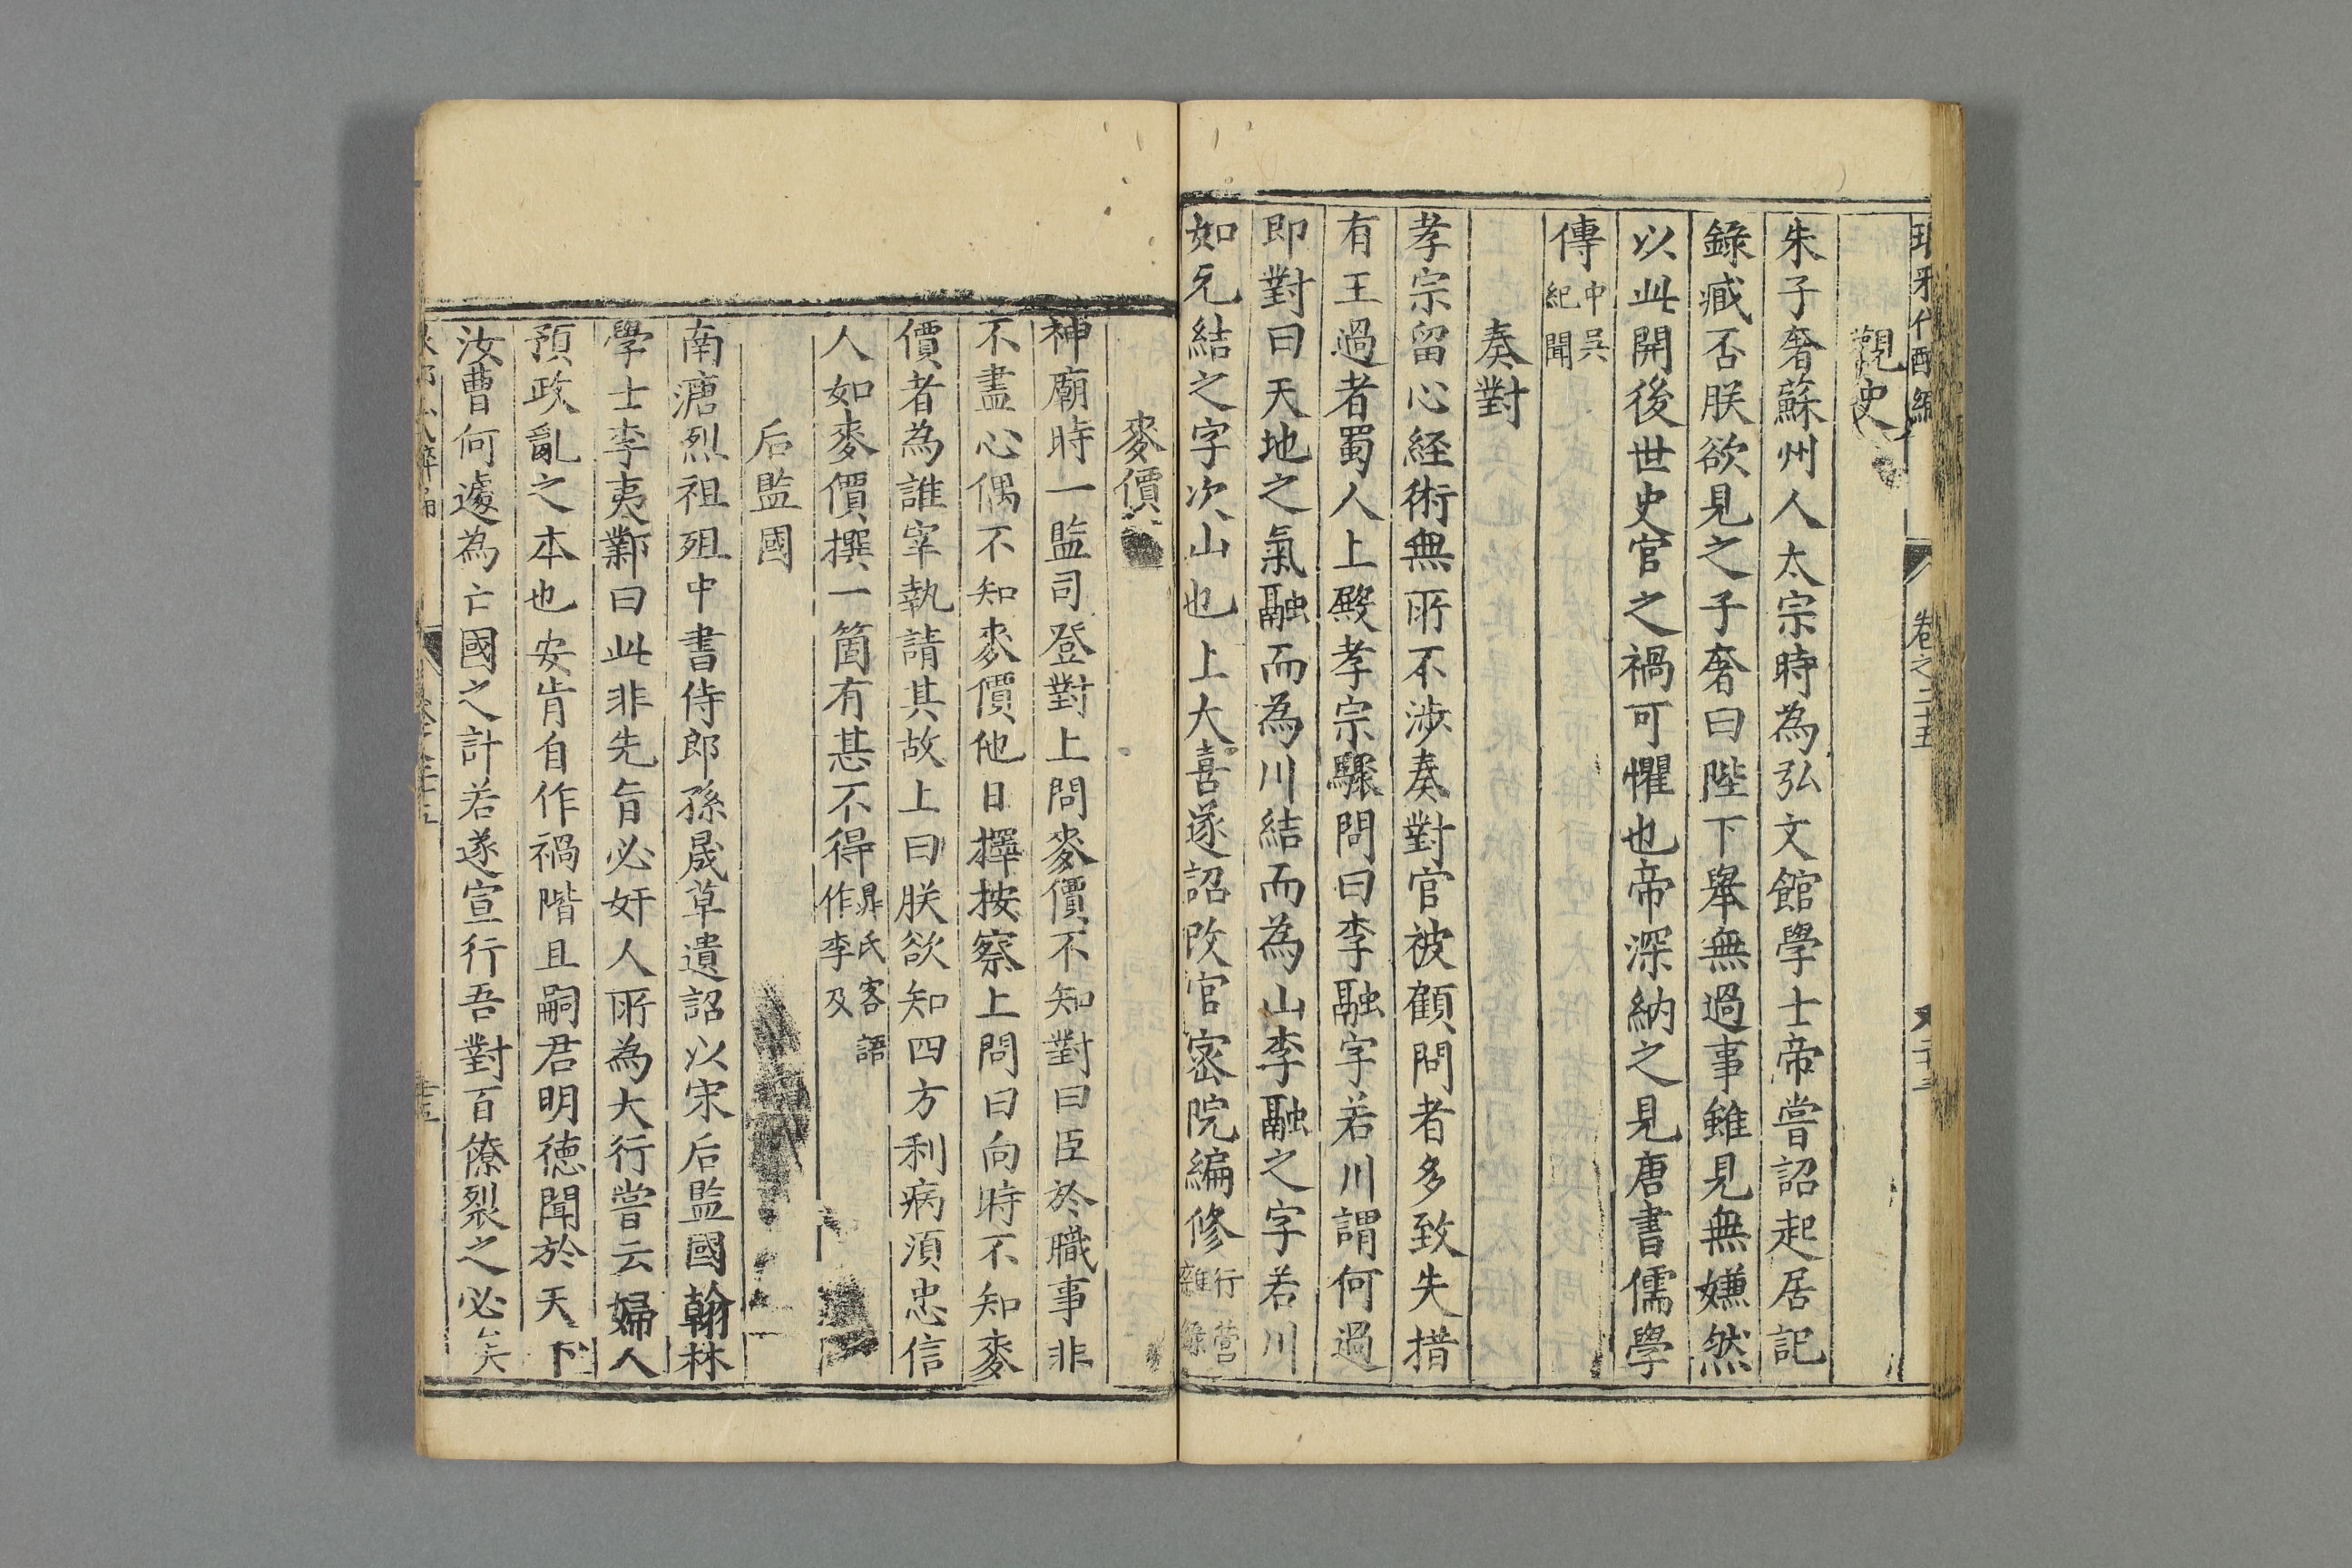 琅邪代醉編 卷之二十五
觀史
朱子奢蘇州人太宗時為弘文館學士帝嘗詔起居記
錄臧否朕欲見之子奢曰陛下舉無過事雖見無嫌然
以此開後世史官之禍可懼也帝深納之見唐書儒學
傳中吳紀聞
奏對
孝宗留心経術無所不涉奏對官被顧問者多致失措
有王過者蜀人上殿孝宗驟問曰李融字若川謂何過
即對曰天地之氣融而為川結而為山李融之字若川
如元結之字次山也上大喜遂詔改官宻院編修行營雜錄
麥價
神廟時一監司登對上問麥價不知對曰臣於職事非
不盡心偶不知麥價他日擇按察上問曰向時不知麥
價者為誰宰執請其故上曰朕欲知四方利病湏忠信
人如麥價撰一箇有甚不得鼂氏客語作李及
后監國
南唐烈祖殂中書侍郎孫晟草遺詔以宋后監國翰林
學士李夷鄴曰此非先旨必奸人所為大行嘗云婦人
預政亂之本也安肯自作禍階且嗣君明德聞於天下
汝曹何遽為亡國之計若遂宣行吾對百僚裂之必矣